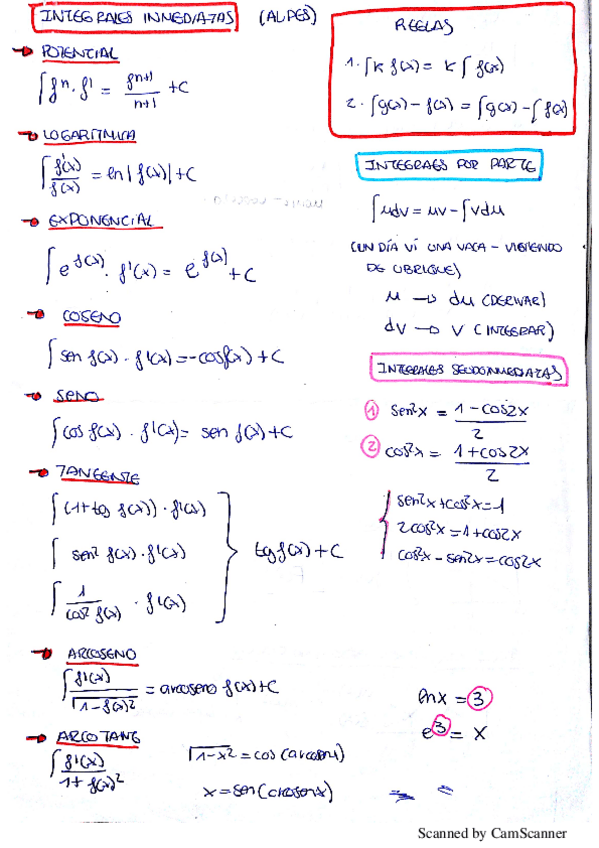 INTEGRALES INMEDIATAS (ALPES)
→ POTENCIAL
∫fⁿ · f' = fⁿ⁺¹/n+1 + C
→ LOGARITMICA
∫ f'(x)/f(x) = ln|f(x)| + C
→ EXPONENCIAL
∫e^f(x) · f'(x) = e^f(x) + C
→ COSENO
∫sen f(x) · f'(x) = -cosf(x) + C
→ SENO
∫cos f(x) · f'(x) = sen f(x) + C
→ TANGENTE
∫(1+tg f(x)) · f'(x)
∫ sen² f(x) · f'(x)
∫ 1/cos² f(x) · f'(x)
} tg f(x) + C
→ ARCOSENO
∫ f'(x)/√1-f(x)² = arcoseno f(x) + C
→ ARCOTANG
∫ f'(x)/1+f(x)²
√1-x² = cos(arcosen)
x = sen(arcosenx)
REGLAS
1. ∫K f(x) = K∫ f(x)
2. ∫g(x) - f(x) = ∫g(x) - ∫f(x)
INTEGRALES POR PARTE
∫udv = uv - ∫vdu
(UN DÍA VI UNA VACA - VISTIENDO
DE UBRIQUE)
u → du (DERIVAR)
dv → v (INTEGRAR)
INTEGRALES SEUDOINMEDIATAS
① sen²x = 1-cos2x/2
② cos²x = 1+cos2x/2
{ sen²x+cos²x=1
2cos²x=1+cos2x
cos²x-sen²x=cos2x
lnx = 3
e³ = x
Scanned by CamScanner